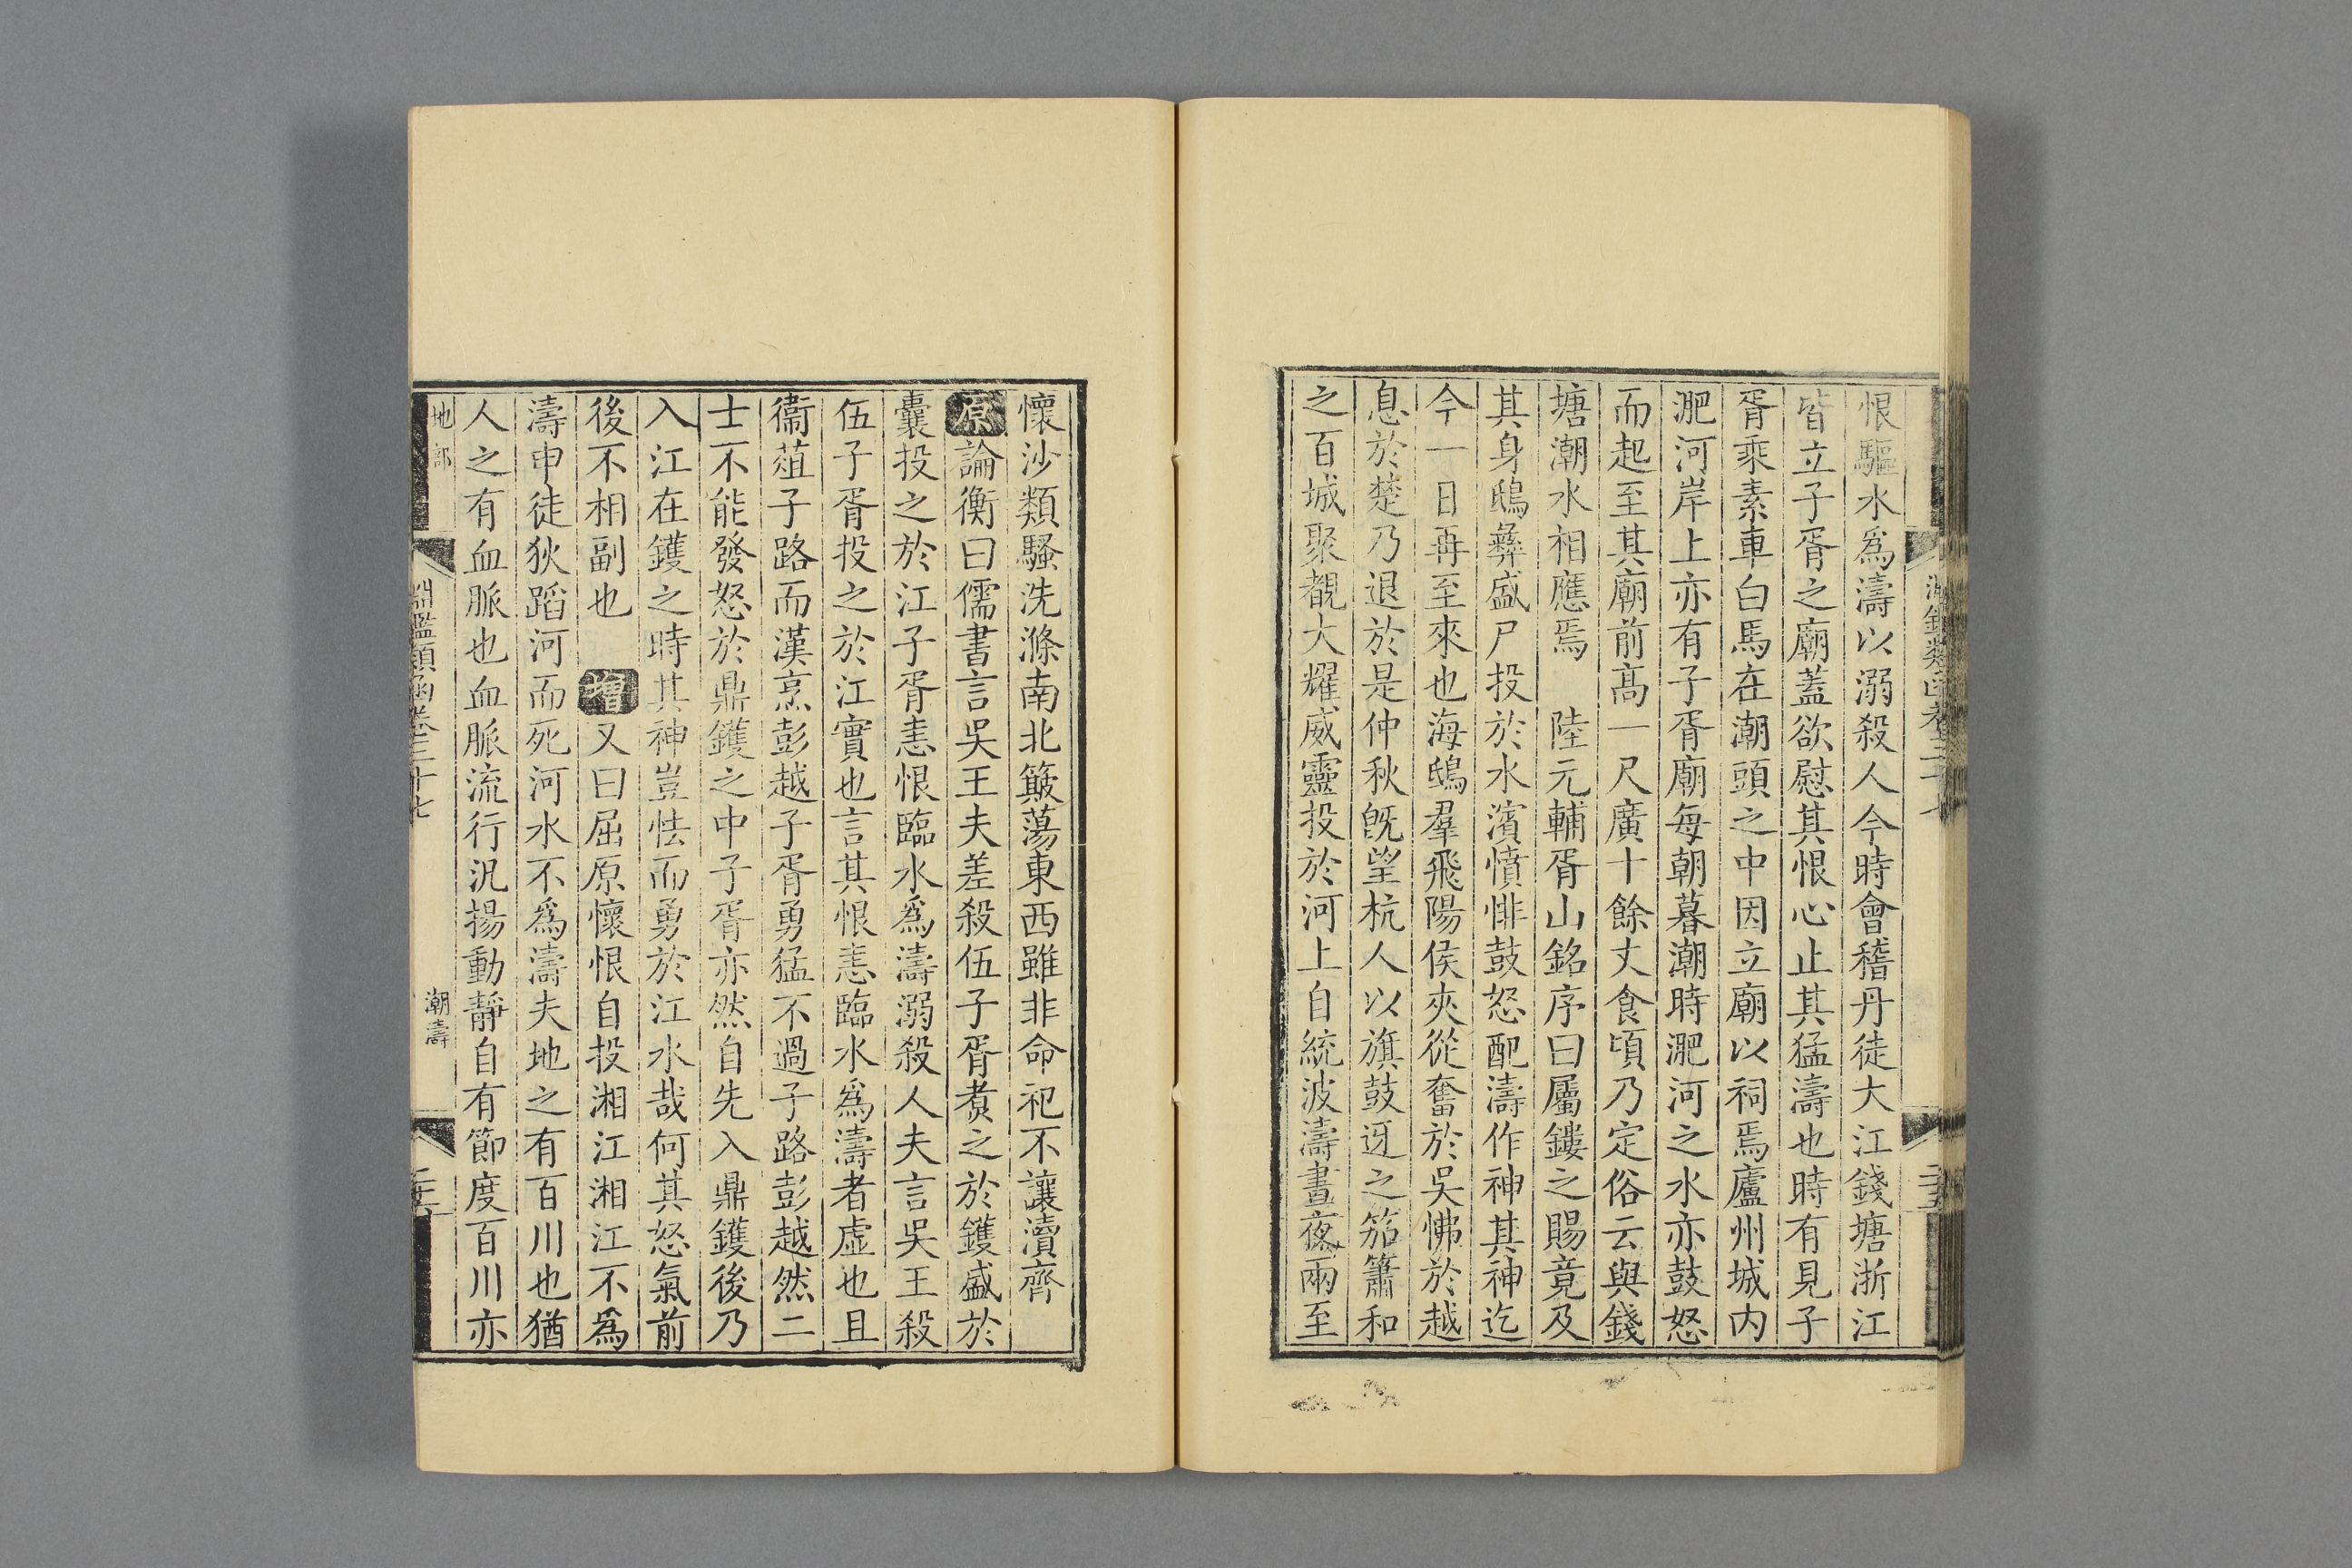 恨驅水爲濤以溺殺人今時會稽丹徒大江錢塘浙江
皆立子胥之廟蓋欲慰其恨心止其猛濤也時有見子
胥乘素車白馬在潮頭之中因立廟以祠焉廬州城内
淝河岸上亦有子胥廟每朝暮潮時淝河之水亦鼓怒
而起至其廟前高一尺廣十餘丈食頃乃定俗云與錢
塘潮水相應焉　陸元輔胥山銘序曰屬鏤之賜竟及
其身鴟彝盛尸投於水濱憤悱鼓怒配濤作神其神迄
今一日再至來也海鴟羣飛陽侯夾從奮於吳怫於越
息於楚乃退於是仲秋旣望杭人以旗鼓迓之笳簫和
之百城聚覩大耀威靈投於河上自統波濤晝夜兩至
懷沙類騷洗滌南北簸蕩東西雖非命祀不讓瀆齊
原論衡曰儒書言吳王夫差殺伍子胥煑之於鑊盛於
囊投之於江子胥恚恨臨水爲濤溺殺人夫言吳王殺
伍子胥投之於江實也言其恨恚臨水爲濤者虛也且
衞菹子路而漢烹彭越子胥勇猛不過子路彭越然二
士不能發怒於鼎鑊之中子胥亦然自先入鼎鑊後乃
入江在鑊之時其神豈怯而勇於江水哉何其怒氣前
後不相副也　增又曰屈原懷恨自投湘江湘江不爲
濤申徒狄蹈河而死河水不爲濤夫地之有百川也猶
人之有血脈也血脈流行汎揚動靜自有節度百川亦
地部
淵鑑類函卷三十七
潮濤